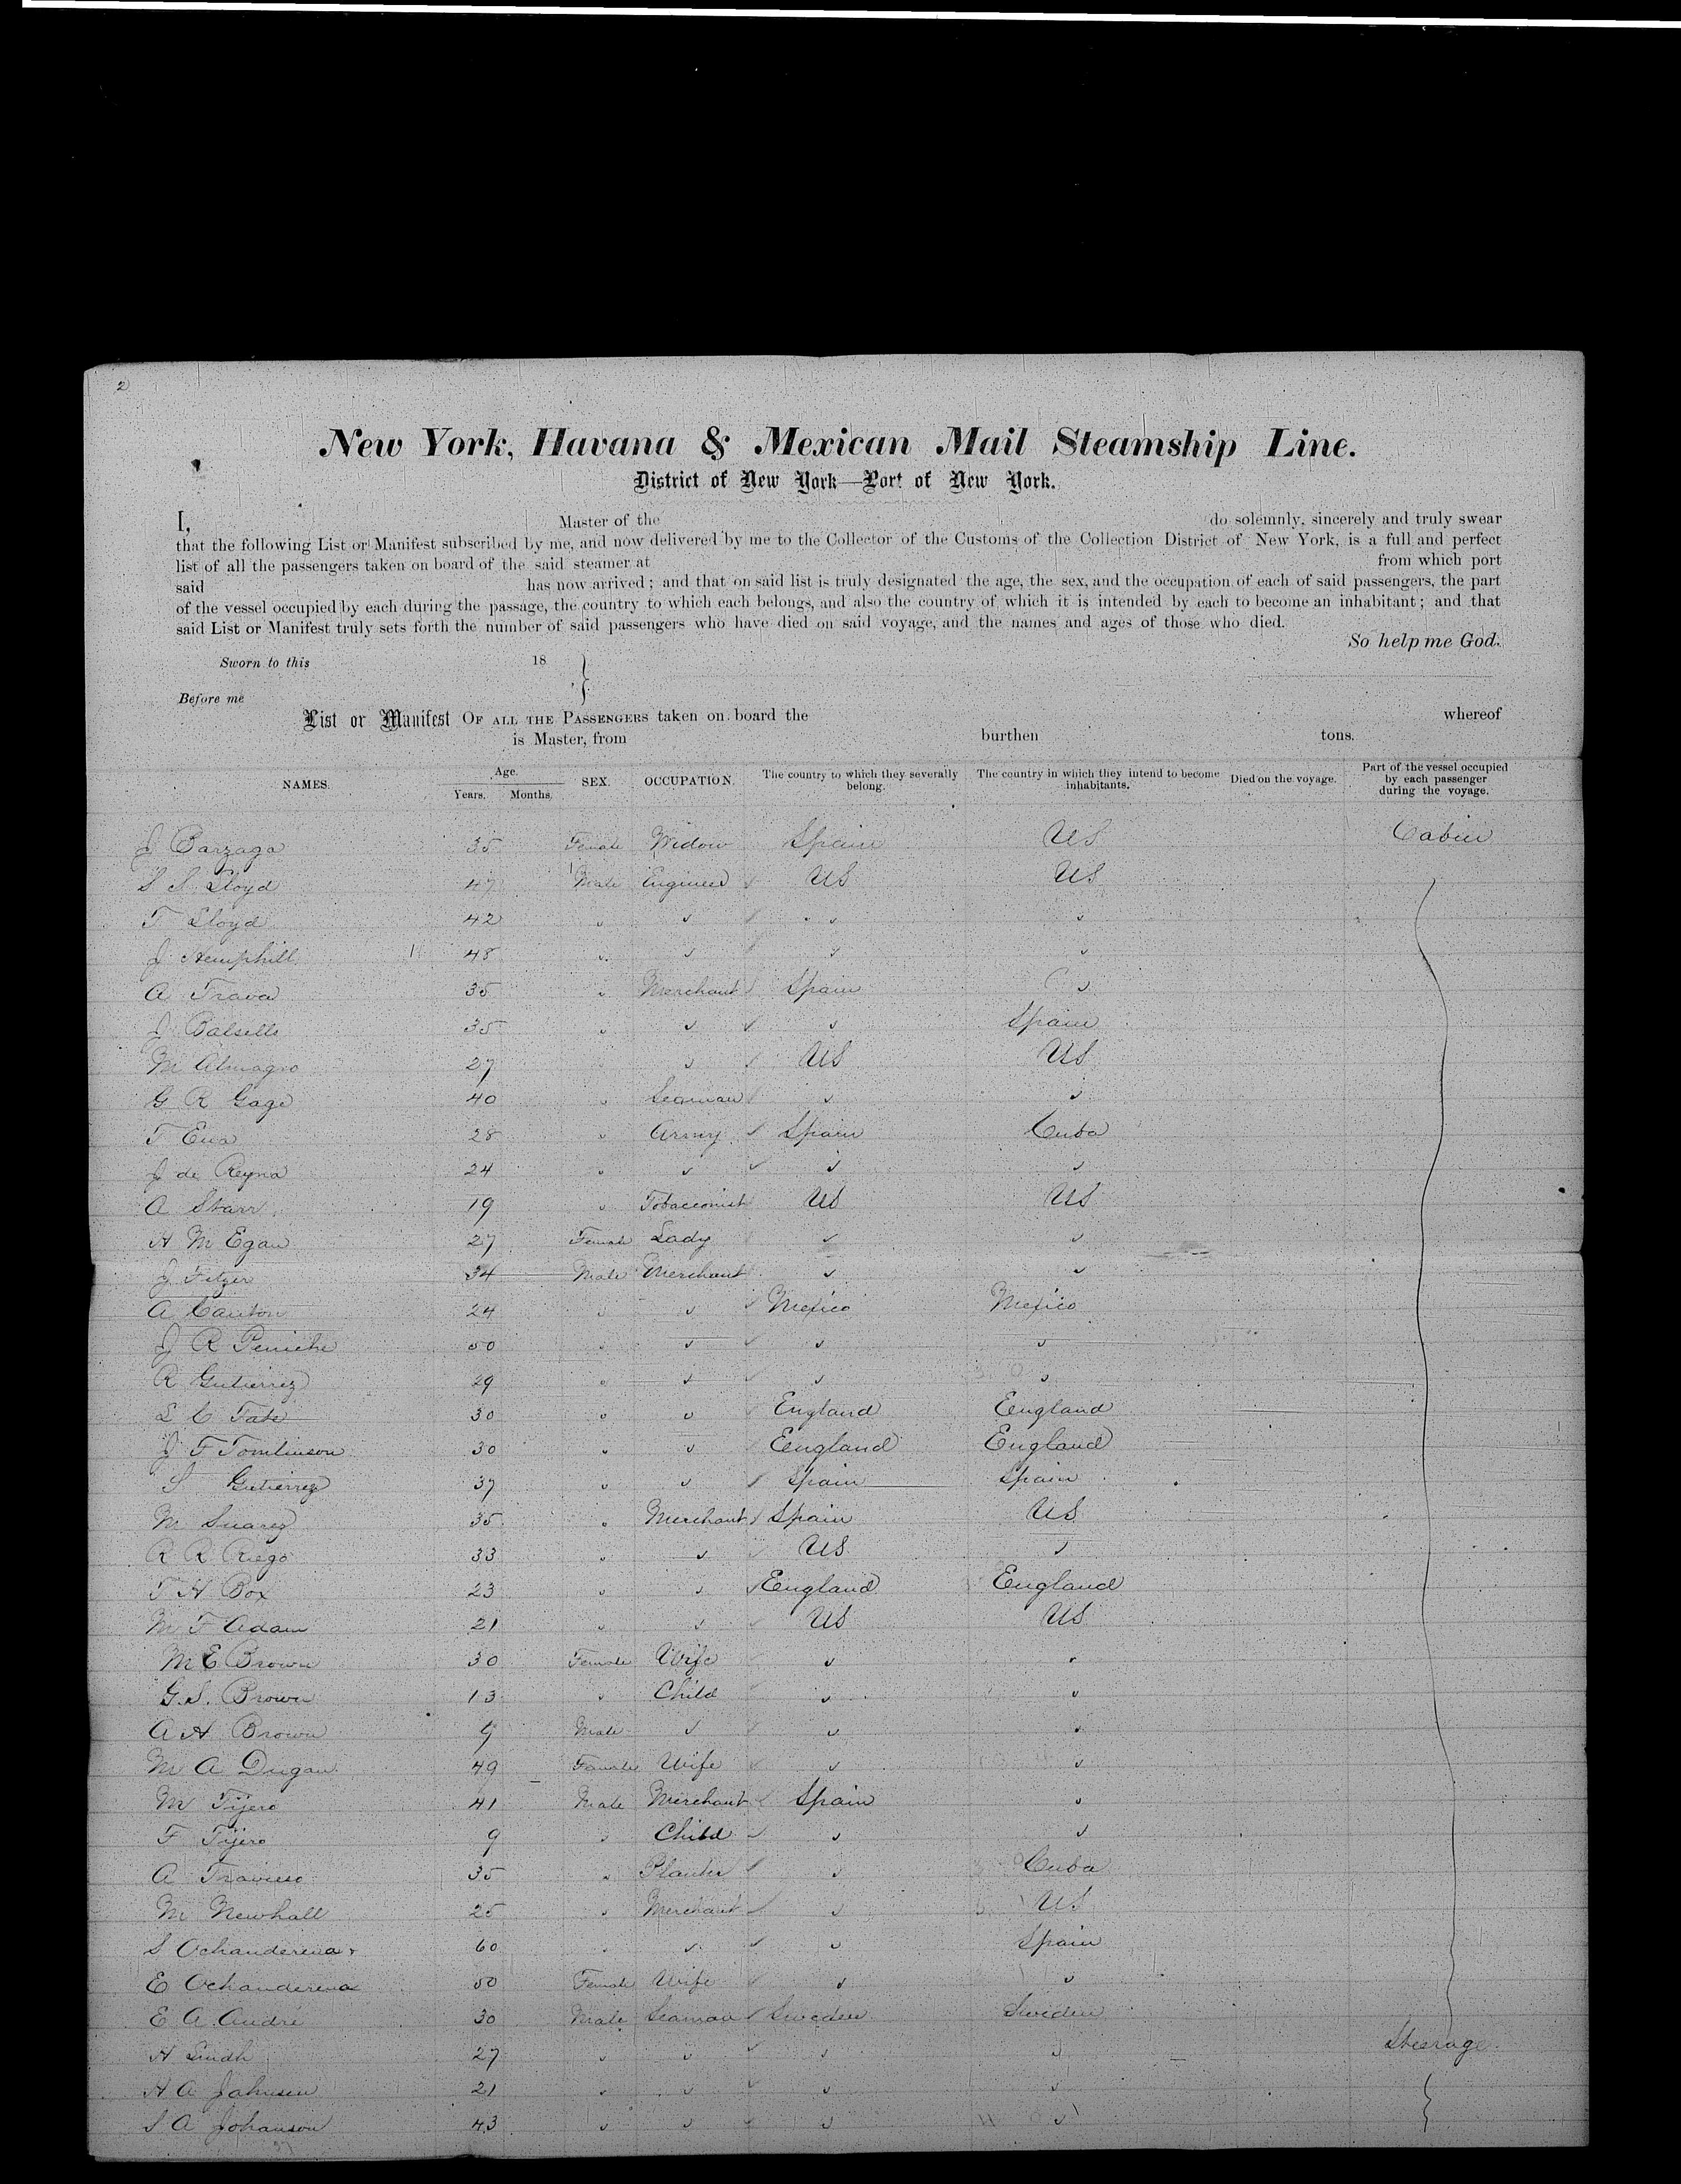 2
New York, Havana & Mexican Mail Steamship Line.
District of New York—Port of New York.
I, Master of the do solemnly, sincerely and truly swear
that the following List or Manifest subscribed by me, and now delivered by me to the Collector of the Customs of the Collection District of New York, is a full and perfect
list of all the passengers taken on board of the said steamer at from which port
said has now arrived; and that on said list is truly designated the age, the sex, and the occupation of each of said passengers, the part
of the vessel occupied by each during the passage, the country to which each belongs, and also the country of which it is intended by each to become an inhabitant; and that
said List or Manifest truly sets forth the number of said passengers who have died on said voyage, and the names and ages of those who died.
So help me God.
Sworn to this 18
Before me
List or Manifest OF ALL THE PASSENGERS taken on board the whereof
is Master, from burthen tons.
NAMES. Age. Years. Months. SEX. OCCUPATION. The country to which they severally belong. The country in which they intend to become inhabitants. Died on the voyage. Part of the vessel occupied by each passenger during the voyage.
J Barzaga 35 Female Widow Spain US Cabin
S S Lloyd 47 Male Engineer US US
T Lloyd 42 " " " "
J Hemphill 48 " " " "
A Trava 35 " Merchant Spain "
J Balsells 35 " " " Spain
M Almagro 27 " " US US
G R Gage 40 " Seaman " "
T Ena 28 " Army Spain Cuba
J de Reyna 24 " " " "
A Starr 19 " Tobacconist US US
H M Egan 27 Female Lady " "
J Fitzer 34 Male Merchant " "
A Canton 24 " " Mexico Mexico
J R Peniche 50 " " " "
R Gutierrez 29 " " " "
L C Tate 30 " " England England
J F Tomlinson 30 " " England England
S Gutierrez 37 " " Spain Spain
M Suarez 35 " Merchant Spain US
R R Riego 33 " " US "
T H Box 23 " " England England
M F Adam 21 " " US US
M E Brown 30 Female Wife " "
G.S. Brown 13 " Child " "
A H Brown 9 Male " " "
M A Dugan 49 Female Wife " "
M Tijero 41 Male Merchant Spain "
F Tijero 9 " Child " "
A Travieso 35 " Planter " Cuba
M Newhall 25 " Merchant " US
S Ochanderena 60 " " " Spain
E Ochanderena 50 Female Wife " "
E A André 30 Male Seaman Sweden Sweden
H Lindh 27 " " " " Steerage
H A Johnsen 21 " " " "
S A Johanson 43 " " " "